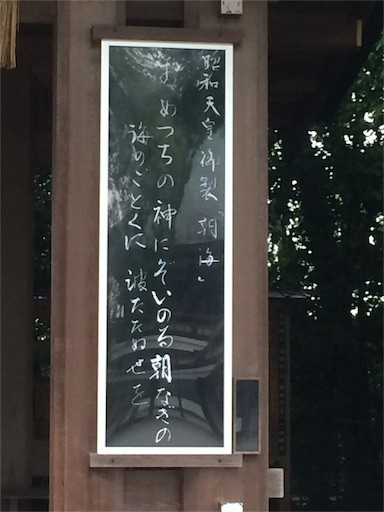 昭和天皇御製「朝海」
あめつちの神にぞいのる朝なぎの
海のごとくに波たたぬ世を